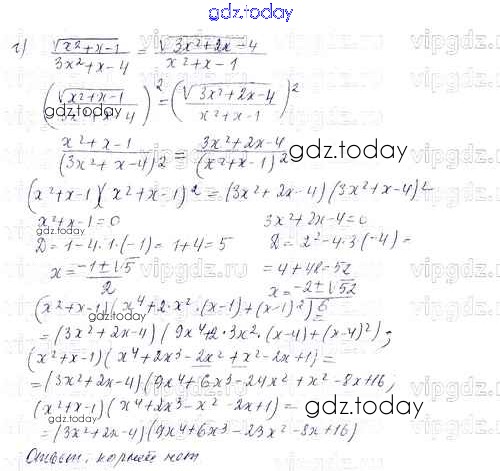 gdz.today
г) √(x²+x-1)/(3x²+x-4) = √(3x²+2x-4)/(x²+x-1)
gdz.today
(√(x²+x-1)/(3x²+x-4))² = (√(3x²+2x-4)/(x²+x-1))²
gdz.today
(x²+x-1)/(3x²+x-4)² = (3x²+2x-4)/(x²+x-1)²
gdz.today
(x²+x-1)(x²+x-1)² = (3x²+2x-4)(3x²+x-4)²
x²+x-1=0 3x²+2x-4=0
D=1-4·1·(-1)=1+4=5 D=2²-4·3(-4)=
x=(-1±√5)/2 =4+48=52
x=(-2±√52)/6
(x²+x-1)(x⁴+2·x²·(x-1)+(x-1)²)=
gdz.today
=(3x²+2x-4)(9x⁴+2·3x²·(x-4)+(x-4)²);
gdz.today
(x²+x-1)(x⁴+2x³-2x²+x²-2x+1)=
=(3x²+2x-4)(9x⁴+6x³-24x²+x²-8x+16;
(x²+x-1)(x⁴+2x³-x²-2x+1)=
gdz.today
=(3x²+2x-4)(9x⁴+6x³-23x²-8x+16)
Ответ: корней нет
gdz.today